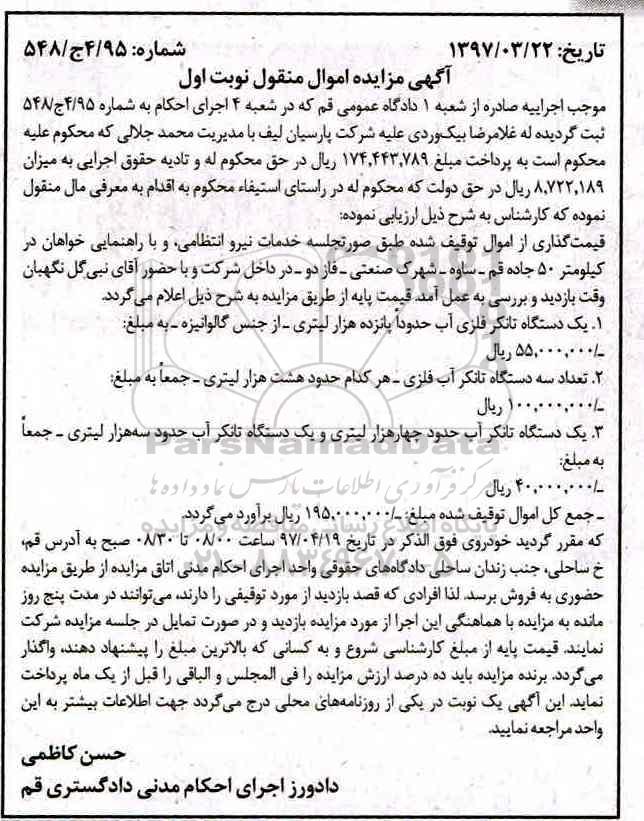 تاریخ: ۱۳۹۷/۰۳/۲۲
شماره: ۴/۹۵ج/۵۴۸
آگهی مزایده اموال منقول نوبت اول
موجب اجراییه صادره از شعبه ۱ دادگاه عمومی قم که در شعبه ۴ اجرای احکام به شماره ۴/۹۵ج/۵۴۸
ثبت گردیده له غلامرضا بیک‌وردی علیه شرکت پارسیان لیف با مدیریت محمد جلالی که محکوم علیه
محکوم است به پرداخت مبلغ ۱۷۴,۴۴۳,۷۸۹ ریال در حق محکوم له و تادیه حقوق اجرایی به میزان
۸,۷۲۲,۱۸۹ ریال در حق دولت که محکوم له در راستای استیفاء محکوم به اقدام به معرفی مال منقول
نموده که کارشناس به شرح ذیل ارزیابی نموده:
قیمت‌گذاری از اموال توقیف شده طبق صورتجلسه خدمات نیرو انتظامی، و با راهنمایی خواهان در
کیلومتر ۵۰ جاده قم ـ ساوه ـ شهرک صنعتی ـ فاز دو ـ در داخل شرکت و با حضور آقای نبی‌گل نگهبان
وقت بازدید و بررسی به عمل آمد. قیمت پایه از طریق مزایده به شرح ذیل اعلام می‌گردد.
۱. یک دستگاه تانکر فلزی آب حدوداً پانزده هزار لیتری ـ از جنس گالوانیزه ـ به مبلغ:
ـ/۵۵,۰۰۰,۰۰۰ ریال
۲. تعداد سه دستگاه تانکر آب فلزی ـ هر کدام حدود هشت هزار لیتری ـ جمعاً به مبلغ:
ـ/۱۰۰,۰۰۰,۰۰۰ ریال
۳. یک دستگاه تانکر آب حدود چهارهزار لیتری و یک دستگاه تانکر آب حدود سه‌هزار لیتری ـ جمعاً
به مبلغ:
ـ/۴۰,۰۰۰,۰۰۰ ریال
ـ جمع کل اموال توقیف شده مبلغ: ـ/۱۹۵,۰۰۰,۰۰۰ ریال برآورد می‌گردد.
که مقرر گردید خودروی فوق الذکر در تاریخ ۹۷/۰۴/۱۹ ساعت ۰۸/۰۰ تا ۰۸/۳۰ صبح به آدرس قم،
خ ساحلی، جنب زندان ساحلی دادگاه‌های حقوقی واحد اجرای احکام مدنی اتاق مزایده از طریق مزایده
حضوری به فروش برسد. لذا افرادی که قصد بازدید از مورد توقیفی را دارند، می‌توانند در مدت پنج روز
مانده به مزایده با هماهنگی این اجرا از مورد مزایده بازدید و در صورت تمایل در جلسه مزایده شرکت
نمایند. قیمت پایه از مبلغ کارشناسی شروع و به کسانی که بالاترین مبلغ را پیشنهاد دهند، واگذار
می‌گردد. برنده مزایده باید ده درصد ارزش مزایده را فی المجلس و الباقی را قبل از یک ماه پرداخت
نماید. این آگهی یک نوبت در یکی از روزنامه‌های محلی درج می‌گردد جهت اطلاعات بیشتر به این
واحد مراجعه نمایید.
حسن کاظمی
دادورز اجرای احکام مدنی دادگستری قم
ParsNamadData
مرکز فرآوری اطلاعات پارس نماد داده ها
پایگاه اطلاع رسانی مناقصه و مزایده